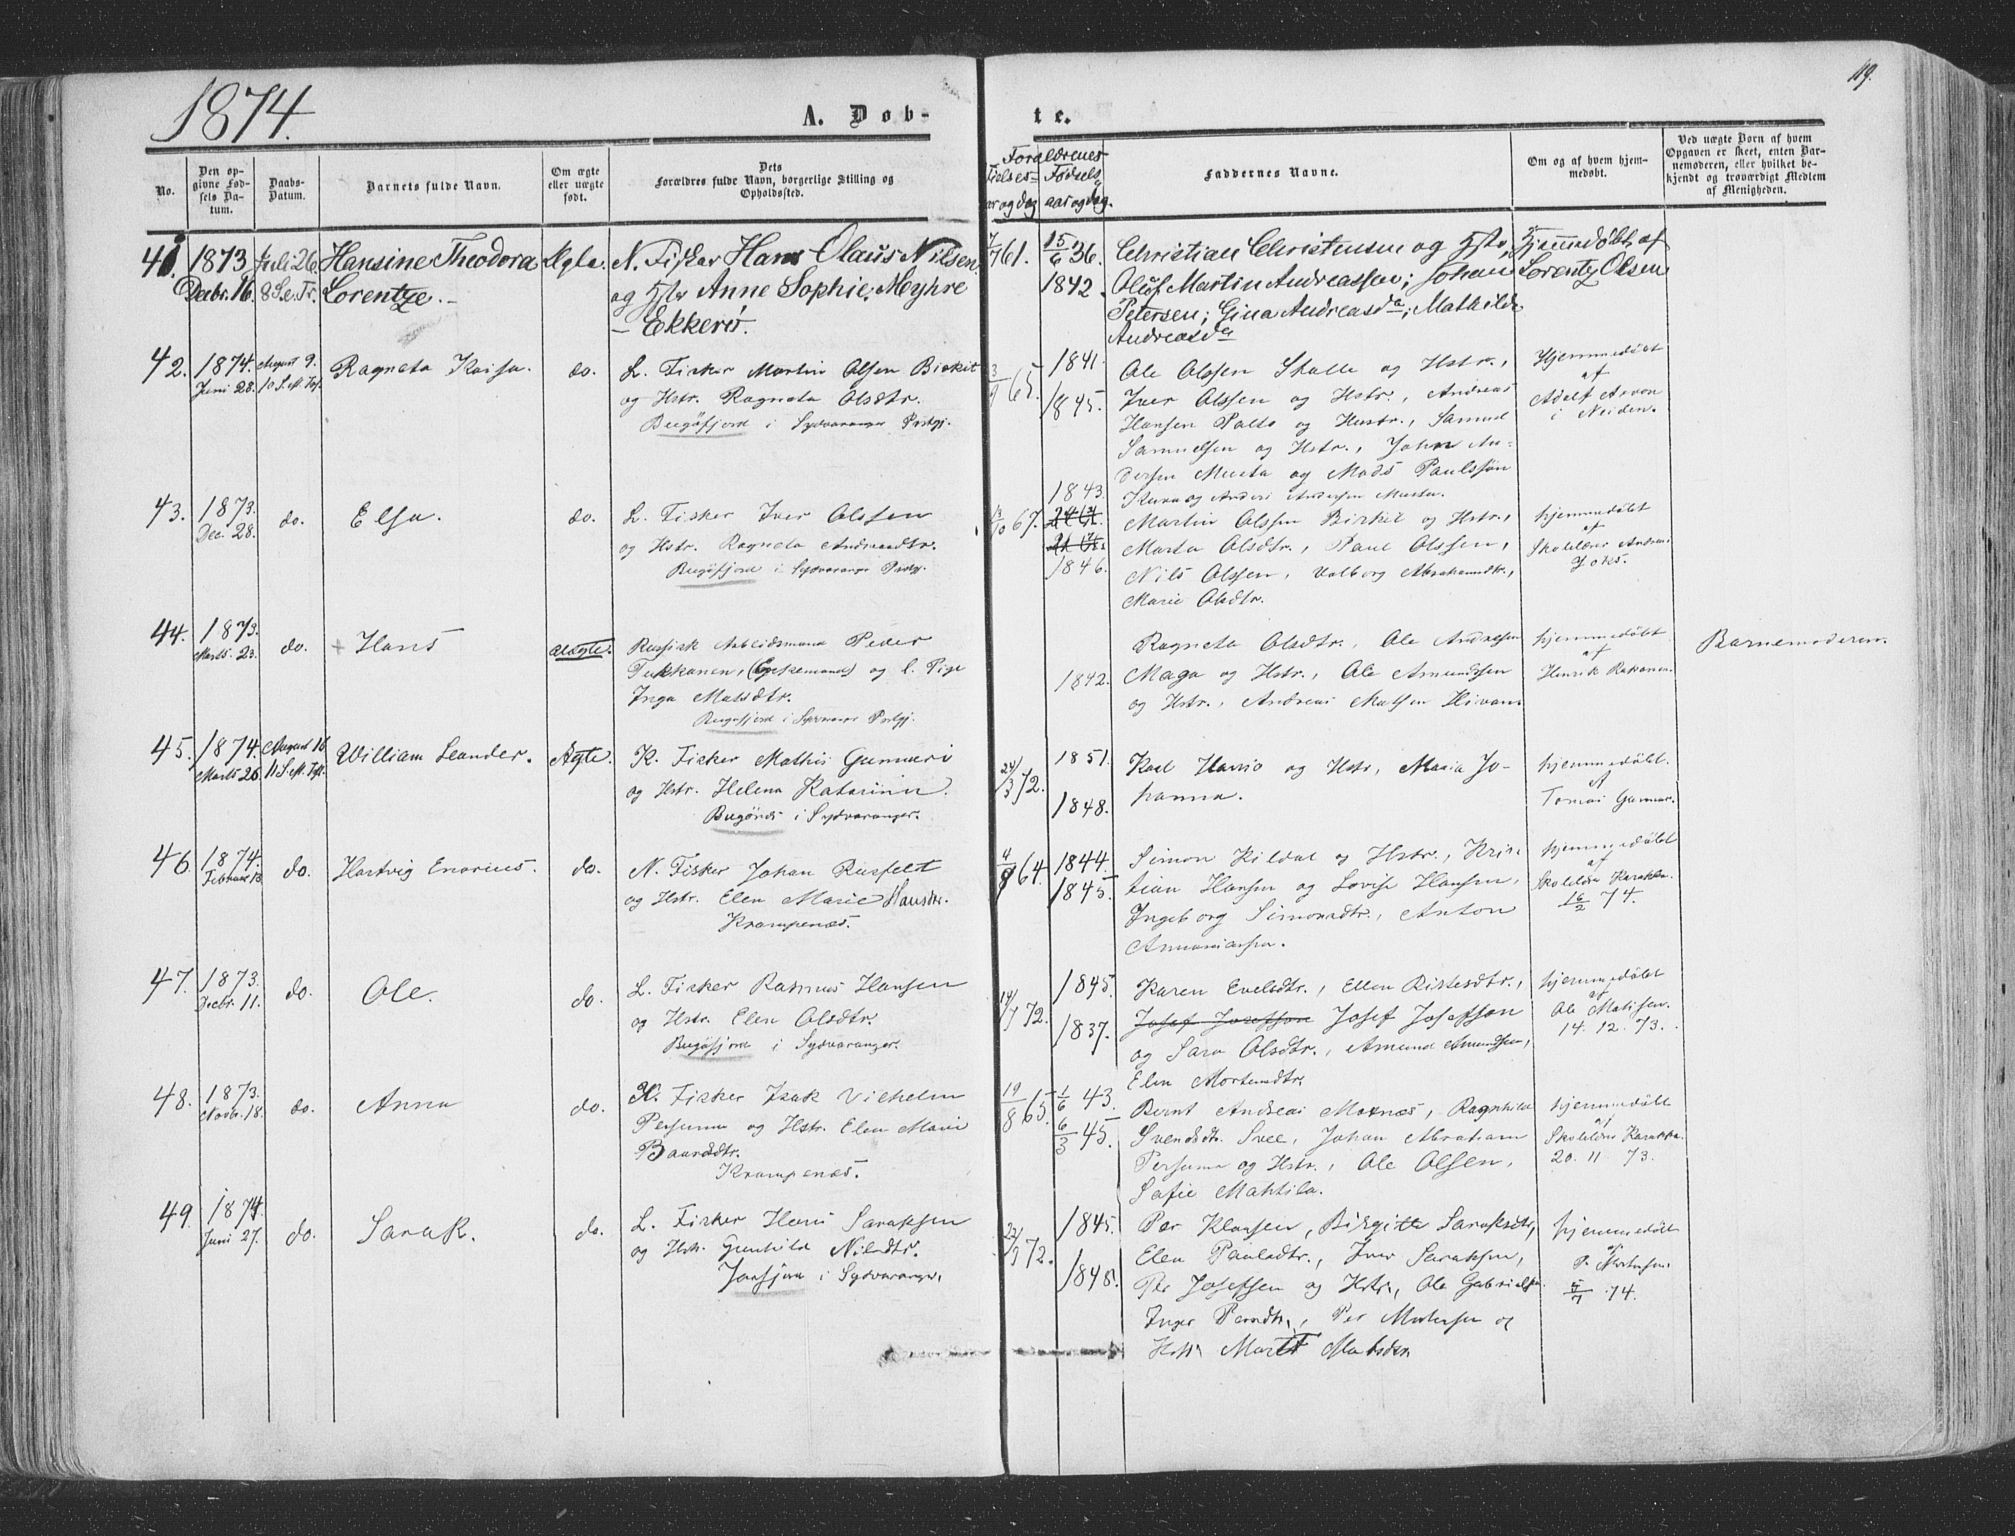 1874.
119.
A. Døb-
te.
No.
Den op-
givne Fød-
sels Da-
tum.
Daabs-
Datum.
Barnets fulde Navn.
Om ægte
eller uægte
født.
Dets
Forældres fulde Navn, borgerlige Stilling og
Opholdssted.
Forældrenes
Fødsels
aar og dag.
Faddernes Navne.
Om og af hvem hjem-
medøbt.
Ved uægte Børn af hvem
Opgaven er skeet, enten Bar-
nemoderen, eller hvilket be-
kjendt og troværdigt Medlem
af Menigheden.
41.
1873
Decbr. 16.
Juli 26
8 S. e. Tr.
Hansine Theodora
Lorentze.
Ægte.
N. Fisker Hans Olaus Nilsen
og Hstr Anne Sophie Meyhre
- Ekkerø.
7/7 61.
15/6 36.
1842.
Christian Christensen og Hstr,
Oluf Martin Andreassen; Johan
Petersen; Gina Andreasd; Mathilde
Andreasd
Hjemmedøbt af
Lorentz Olsen
42.
1874.
Juni 28.
August 9.
10 S. e. Tr.
Ragneta Kaisa.
do.
L. Fisker Martin Olsen Birkit
og Hstr. Ragneta Olsdtr.
Bugöfjord i Sydvaranger Prstgj.
65.
1841.
1845.
Ole Olssen Skalle og Hstr.,
Iver Olssen og Hstr., Andreas
Hansen Palto og Hustr., Samuel
Samuelsen og Hstr., Johan An-
dersen Musta og Mads Paulssøn
og Anders Andersen Musta.
Hjemmedøbt
af
Adolf
i Neiden.
43.
1873.
Dec. 28.
do.
Elsa.
do.
L. Fisker Iver Olssen
og Hstr. Ragneta Andreasdtr.
Bugöfjord i Sydvaranger Prstgj.
67.
1843.
1846.
Martin Olssen Birkit og Hstr.,
Marta Olsdtr., Paul Olssen,
Nils Olssen, Valborg Abrahamdtr.,
Marie Olsdtr.
hjemmedøbt
af
Skolelærer Andreas
44.
1873.
Marts 23.
do.
+ Hans
uægte.
Russisk Arbeidsmand Peder
Pukkanen, (Enkemand) og l. Pige
Inga Matsdtr.
Bugøfjord i Sydvaranger Prstgj.
1842.
Ragneta Olsdtr., Ole Andersen
Maga og Hstr., Ole Amundssen
og Hstr., Andreas Matsen
hjemmedøbt
af
Henrik
Barnemoderen.
45.
1874.
Marts 26.
August 16
11 S. e. Tr.
William Leander.
Ægte.
K. Fisker Mathis Gunnari
og Hstr. Helena Katarina.
Bugönes i Sydvaranger.
24/3 72.
1851.
1848.
Karl Harrio og Hstr, Maria Jo-
hanna.
hjemmedøbt.
af
Tomas Gunnar.
46.
1874.
Februar 13.
do.
Hartvig Enorius.
do.
N. Fisker Johan Rusfelt
og Hstr. Elen Marie Hansdtr.
Krampenæs.
64.
1844.
1845.
Simon Kildal og Hstr., Kris-
tian Hansen og Lovise Hansen,
Ingeborg Simonsdtr., Anton
Annaniassen.
hjemmedøbt
af
Skolelærer Karakka.
16/2 74.
47.
1873.
Decbr. 11.
do.
Ole.
do.
L. Fisker Rasmus Hansen
og Hstr. Elen Olsdtr.
Bugöfjord i Sydvaranger.
14/7 72.
1845.
1837.
Karen Evelsdtr., Ellen Ristesdtr.,
Josef Josefsson Josef Josefsson
og Sara Olsdtr., Amund Amundssen,
Elen Mortensdtr.
hjemmedøbt
af
Ole Matisen.
14. 12. 73.
48.
1873.
Novb. 18.
do.
Anna
do.
K. Fisker Isak Vilhelm
Persuma og Hstr. Elen Marie
Baardsdtr.
Krampenæs.
19/8 65.
1/6 43.
6/3 45.
Bernt Andreas Moxnæs, Ragnhild
Svendsdtr. Svee, Johan Abraham
Persuma og Hstr., Ole Olsen,
Sofie Mahtila.
hjemmedøbt
af
Skolelærer Karakka.
20. 11. 73.
49.
1874
Juni 27.
do.
Sarak.
do.
L. Fisker Hans Saraksen
og Hstr. Gunhild Nilsdtr.
Jarfjord i Sydvaranger.
72.
1845.
1848.
Per Klausen, Birgitte Saraksdtr,
Elen Paulsdtr., Iver Saraksen,
Per Josefsen og Hstr., Ole Gabrielsen
Inger Persdtr., Per Mortensen og
Hstr. Marit Matsdtr
hjemmedøbt
af
P. Mortensen.
74.